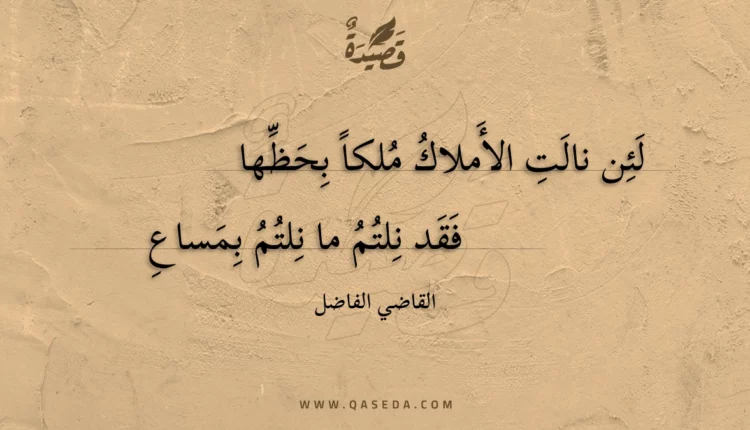 قَصِيْدَةٌ
لَئِن نالَتِ الأَملاكُ مُلكاً بِحَظِّها
فَقَد نِلتُمُ ما نِلتُمُ بِمَساعِ
القاضي الفاضل
WWW.QASEDA.COM